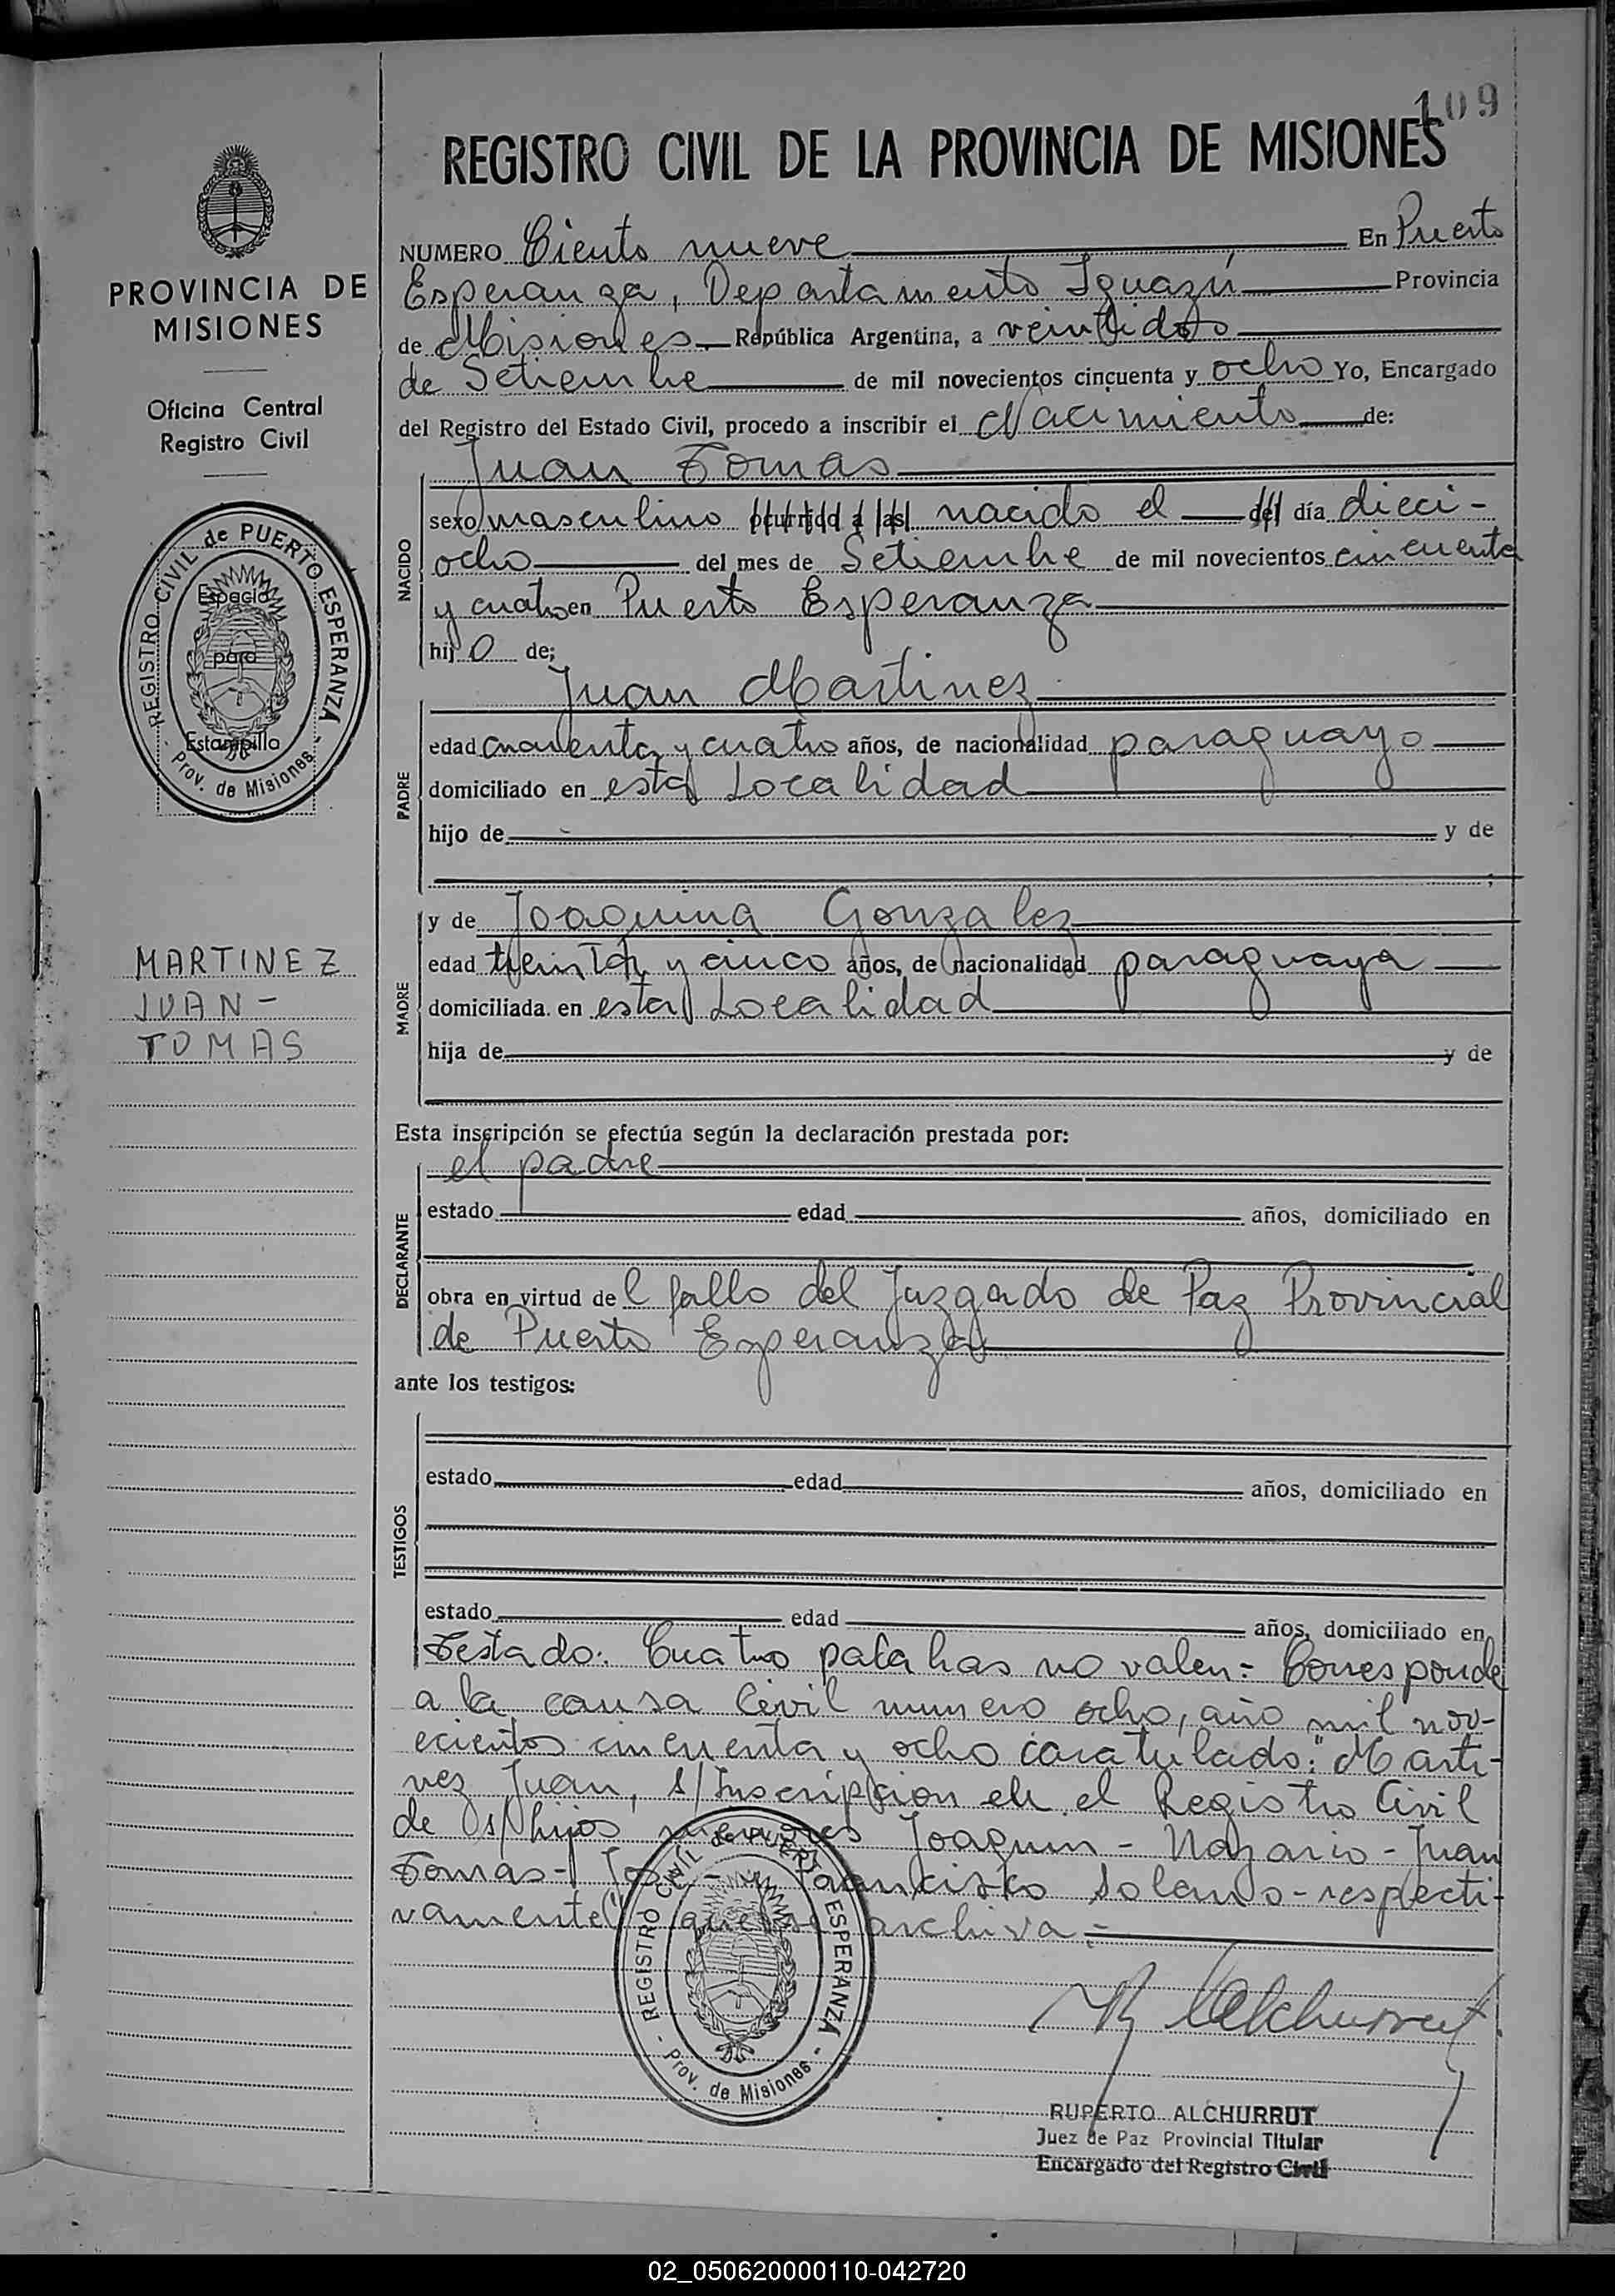 109
REGISTRO CIVIL DE LA PROVINCIA DE MISIONES
PROVINCIA DE
MISIONES
Oficina Central
Registro Civil
REGISTRO CIVIL de PUERTO ESPERANZA
- Prov. de Misiones -
Espacio
para
Estampilla
MARTINEZ
JUAN -
TOMAS
NUMERO Ciento nueve En Puerto
Esperanza, Departamento Iguazú Provincia
de Misiones República Argentina, a veintidos
de Setiembre de mil novecientos cincuenta y ocho Yo, Encargado
del Registro del Estado Civil, procedo a inscribir el Nacimiento de:
NACIDO
Juan Tomas
sexo masculino ocurrido a las nacido el del día dieci-
ocho del mes de Setiembre de mil novecientos cincuenta
y cuatro en Puerto Esperanza
hijo de;
PADRE
Juan Martinez
edad cuarenta y cuatro años, de nacionalidad paraguayo
domiciliado en esta Localidad
hijo de y de
;
MADRE
y de Joaquina Gonzalez
edad treinta y cinco años, de nacionalidad paraguaya
domiciliada en esta Localidad
hija de y de
Esta inscripción se efectúa según la declaración prestada por:
DECLARANTE
el padre
estado edad años, domiciliado en
obra en virtud del fallo del Juzgado de Paz Provincial
de Puerto Esperanza
ante los testigos:
TESTIGOS
estado edad años, domiciliado en
estado edad años, domiciliado en
Testado: Cuatro palabras no valen:- Corresponde
a la causa Civil numero ocho, año mil nov-
ecientos cincuenta y ocho caratulado: "Marti-
nez Juan, s/Inscripcion en el Registro Civil
de s/hijos menores Joaquin - Nazario - Juan
Tomas - José - y Francisco Solano - respecti-
vamente" que se archiva.-
REGISTRO CIVIL de PUERTO ESPERANZA
- Prov. de Misiones -
R Alchurrut
RUPERTO ALCHURRUT
Juez de Paz Provincial Titular
Encargado del Registro Civil
02_050620000110-042720